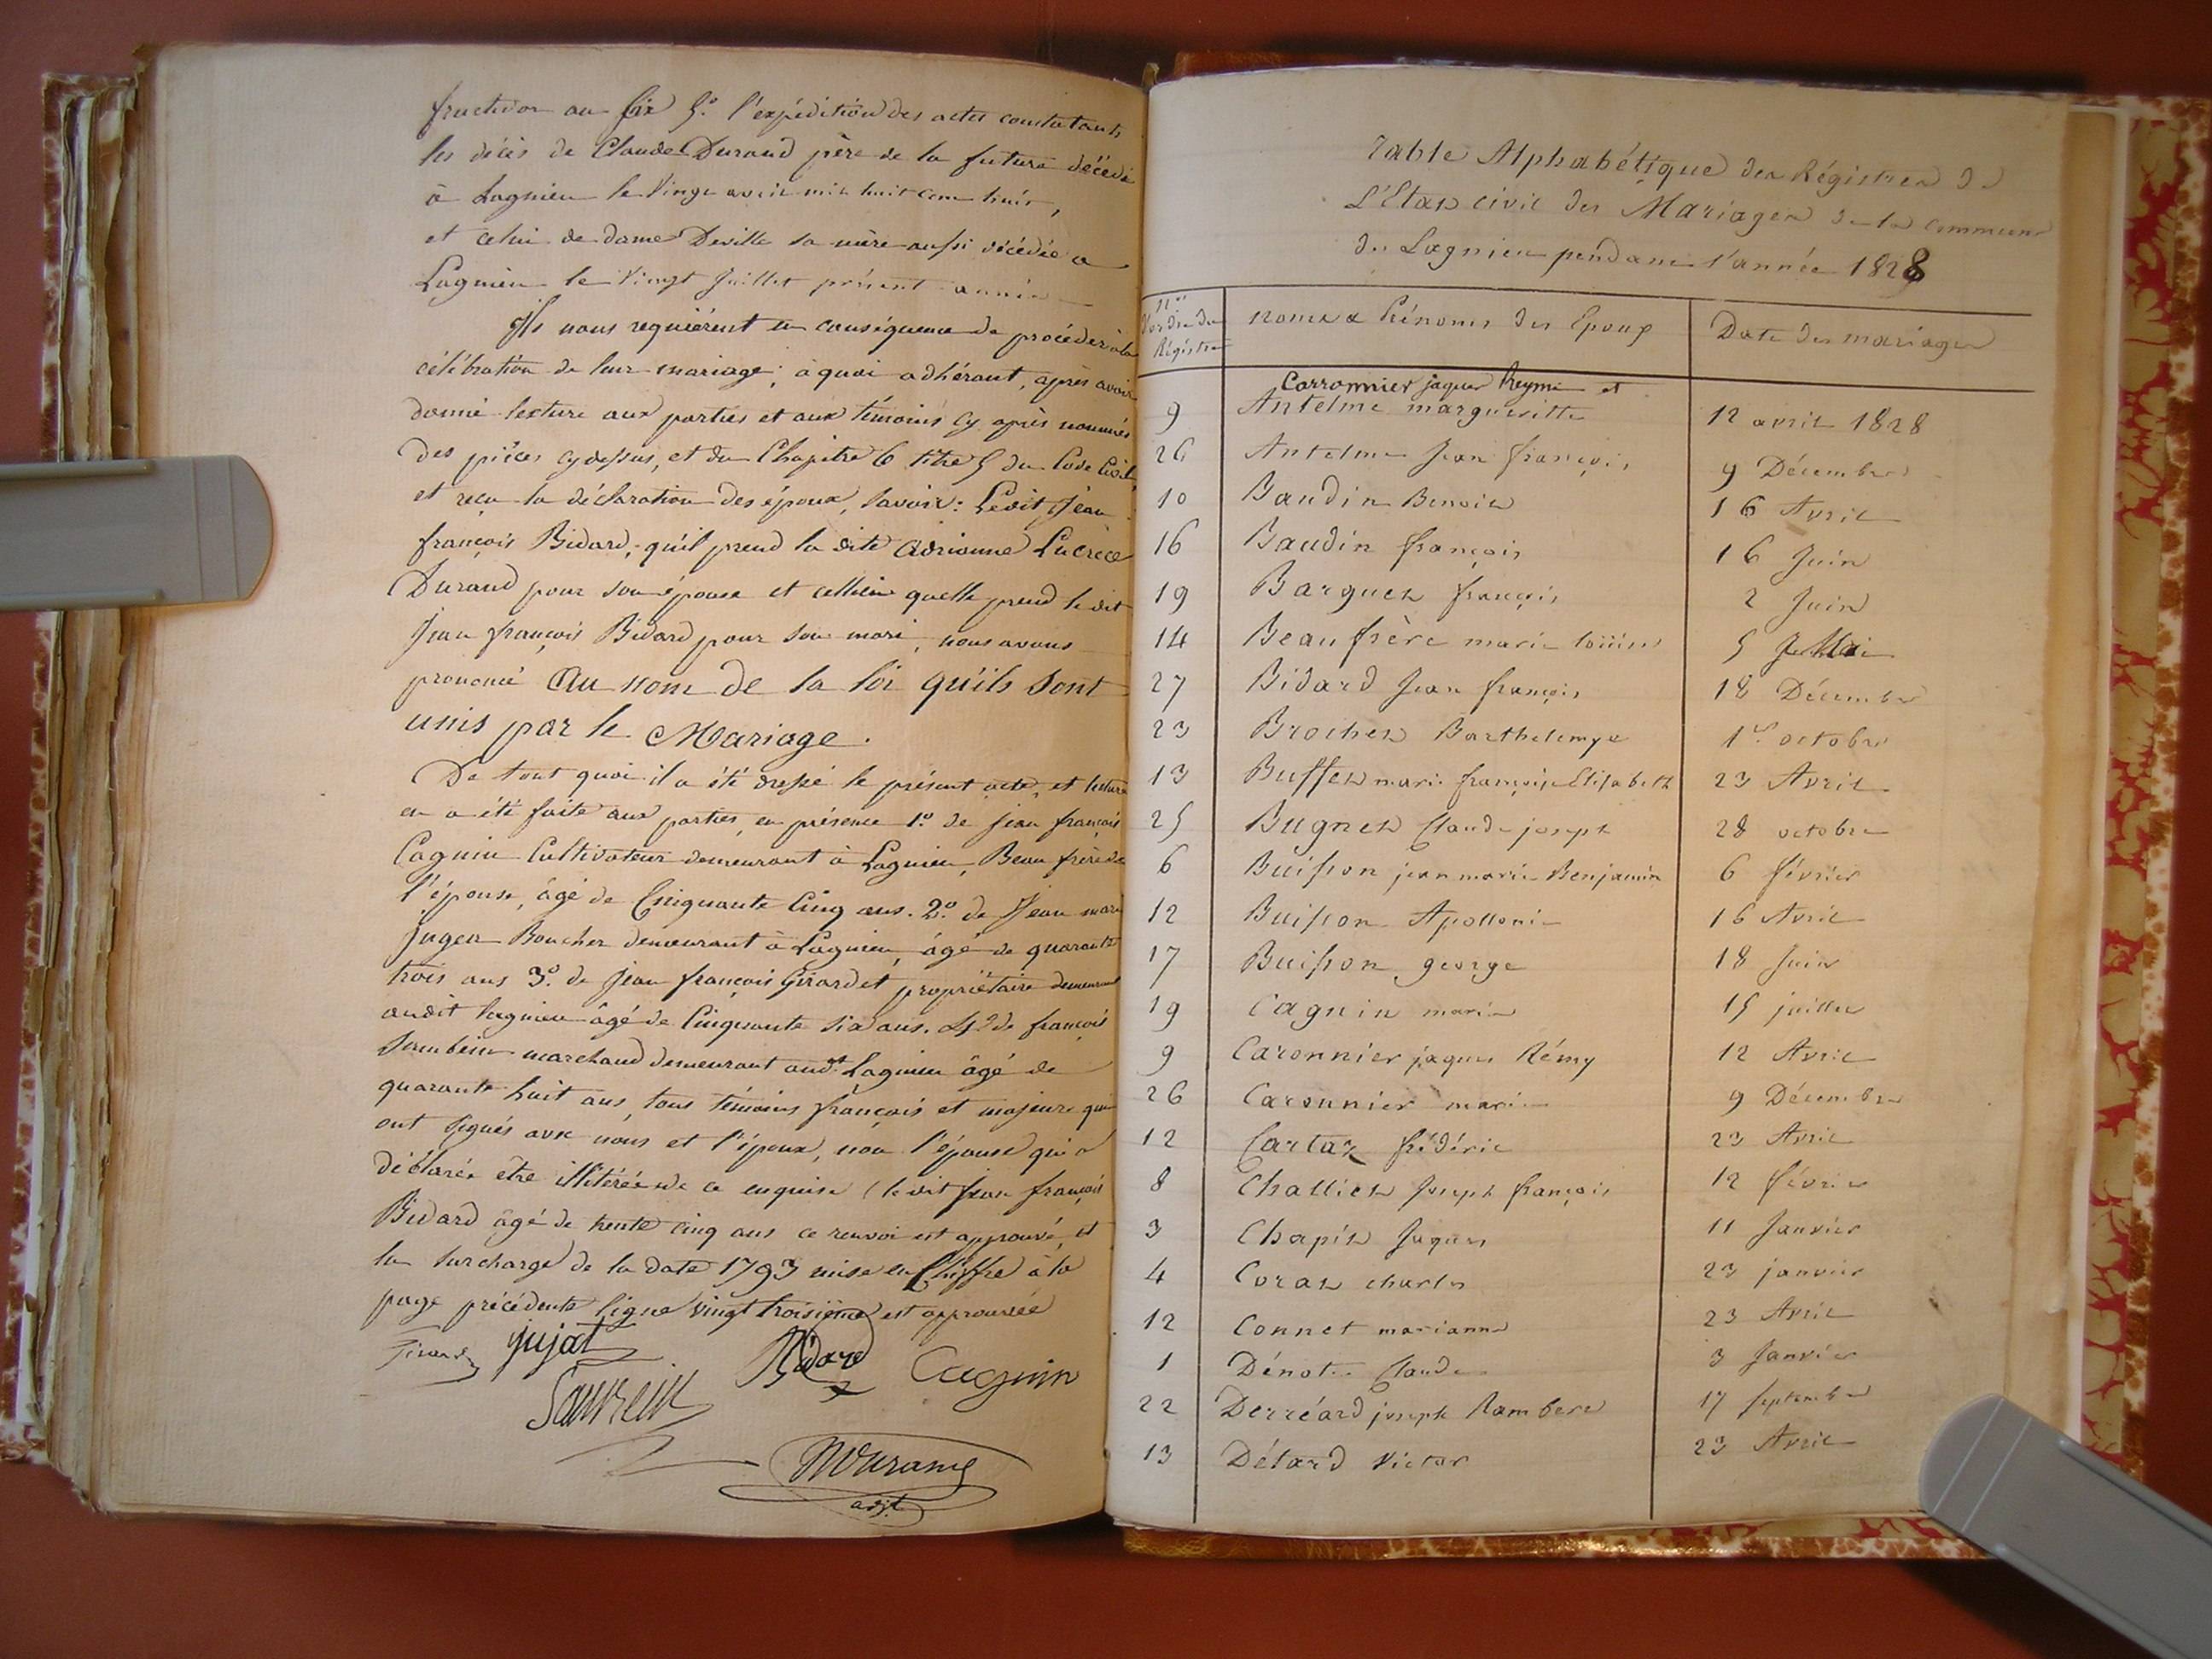 fructidor an six 5.º l'expédition des actes constatants
les décès de Claude Durand père de la future décédé
à Lagnieu le Vingt avril mil huit cent huit,
et celui de dame Deville sa mère aussi décédée a
Lagnieu le Vingt Juillet présent année
Ils nous requièrent en conséquence de procéder à la
célébration de leur mariage; à quoi adhérant, après avoir
donné lecture aux parties et aux témoins cy après nommés
des pièces cy dessus, et du Chapitre 6 titre 5 du Code Civil,
et reçu la déclaration des époux, Savoir: Ledit Jean
françois Bidard, qu'il prend la dite Adrianne Lucrèce
Durand pour son épouse et celleci quelle prend le dit
Jean françois Bidard pour son mari, nous avons
prononcé Au nom de la loi qu'ils sont
unis par le Mariage.
De tout quoi il a été dressé le présent acte, et lecture
en a été faite aux parties, en présence 1.º de jean françois
Cagnin Cultivateur demeurant à Lagnieu, Beau frère de
l'épouse, âgé de Cinquante Cinq ans. 2.º de Jean marie
Boucher demeurant à Lagnieu, âgé de quarante
trois ans 3.º de Jean françois Girardet propriétaire demeurant
audit lagnieu âgé de Cinquante six ans. 4.º de françois
marchand demeurant aud.t Lagnieu âgé de
quarante huit ans, tous témoins français et majeurs qui
ont signés avec nous et l'époux, non l'épouse qui a
déclarée être illitérée de ce enquise (le dit Jean françois
Bidard âgé de trente cinq ans ce renvoi est approuvé, et
la surcharge de la date 1793 mise en Chiffre à la
page précédente ligne vingt troisième est approuvée
jujat Bidard Cagnin
Durand
adjt
Table Alphabétique des Régistres de
L'Etat civil des Mariages de la commune
de Lagnieu pendant l'année 1828
n.os d'ordre du Régistre
noms & Prénoms des Epoux
Date des mariages
Carronnier jaques Reymi et
9 Antelme margueritte 12 avril 1828
26 Antelme Jean françois 9 Décembre
10 Baudin Benoit 16 Avril
16 Baudin françois 16 Juin
19 Barguet françois 2 Juin
14 Beaufrère marie loüise 5 Mai
27 Bidard Jean françois 18 Décembre
23 Brochet Barthelemye 1er octobre
13 Buffet marie françoise Elisabeth 23 Avril
25 Bugnet Claude joseph 28 octobre
6 Buisson jean marie Benjamin 6 février
12 Buisson Apollonie 16 Avril
17 Buisson george 18 Juin
19 Cagnin marie 15 juillet
9 Caronnier jaques Rémy 12 Avril
26 Caronnier marie 9 Décembre
12 Cartaz frédéric 23 Avril
8 Challiet Joseph françois 12 février
3 Chapit Jaques 11 Janvier
4 Corat charles 23 janvier
12 Connet marianne 23 Avril
1 Dénotte Claude 3 Janvier
22 Derréard joseph Rambert 17 septembre
13 Détard Victor 23 Avril